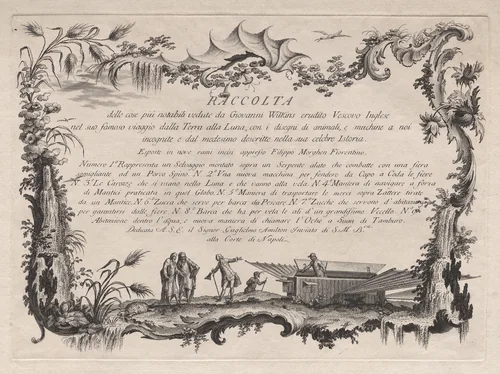 RACCOLTA
delle cose più notabili vedute da Giovanni Wilkins erudito Vescovo Inglese
nel suo famoso viaggio dalla Terra alla Luna, con i disegni di animali, e machine a noi
incognite e dal medesimo descritte nella sua celebre Istoria.
Esposte in nove rami incisi appresso Filippo Morghen Fiorentino.
Numero 1.º Rappresenta un Selvaggio montato sopra un Serpente alato che combatte con una fiera
somigliante ad un Porco Spino. N. 2.º Una nuova macchina per fendere da Capo a Coda le fiere
N. 3.º Le Carozze che si usano nella Luna e che vanno alla vela. N. 4.º Maniera di navigare a forza
di Mantici praticata in quel Globo N. 5.º Maniera di trasportare le nevi sopra Zattere tirate
da un Mantice. N. 6.º Zucca che serve per barca da Pescare. N. 7.º Zucche che servono d'abitazione
per garantirsi dalle fiere. N. 8.º Barca che ha per vela le ali d'un grandissimo Uccello. N. 9.º
Abitazione dentro l'acqua, e nuova maniera di chiamare l'Oche a Suon di Tamburo.
Dedicata A. S. E. il Signor Guglielmo Amilton Inviato di S. M. B.
alla Corte di Napoli.